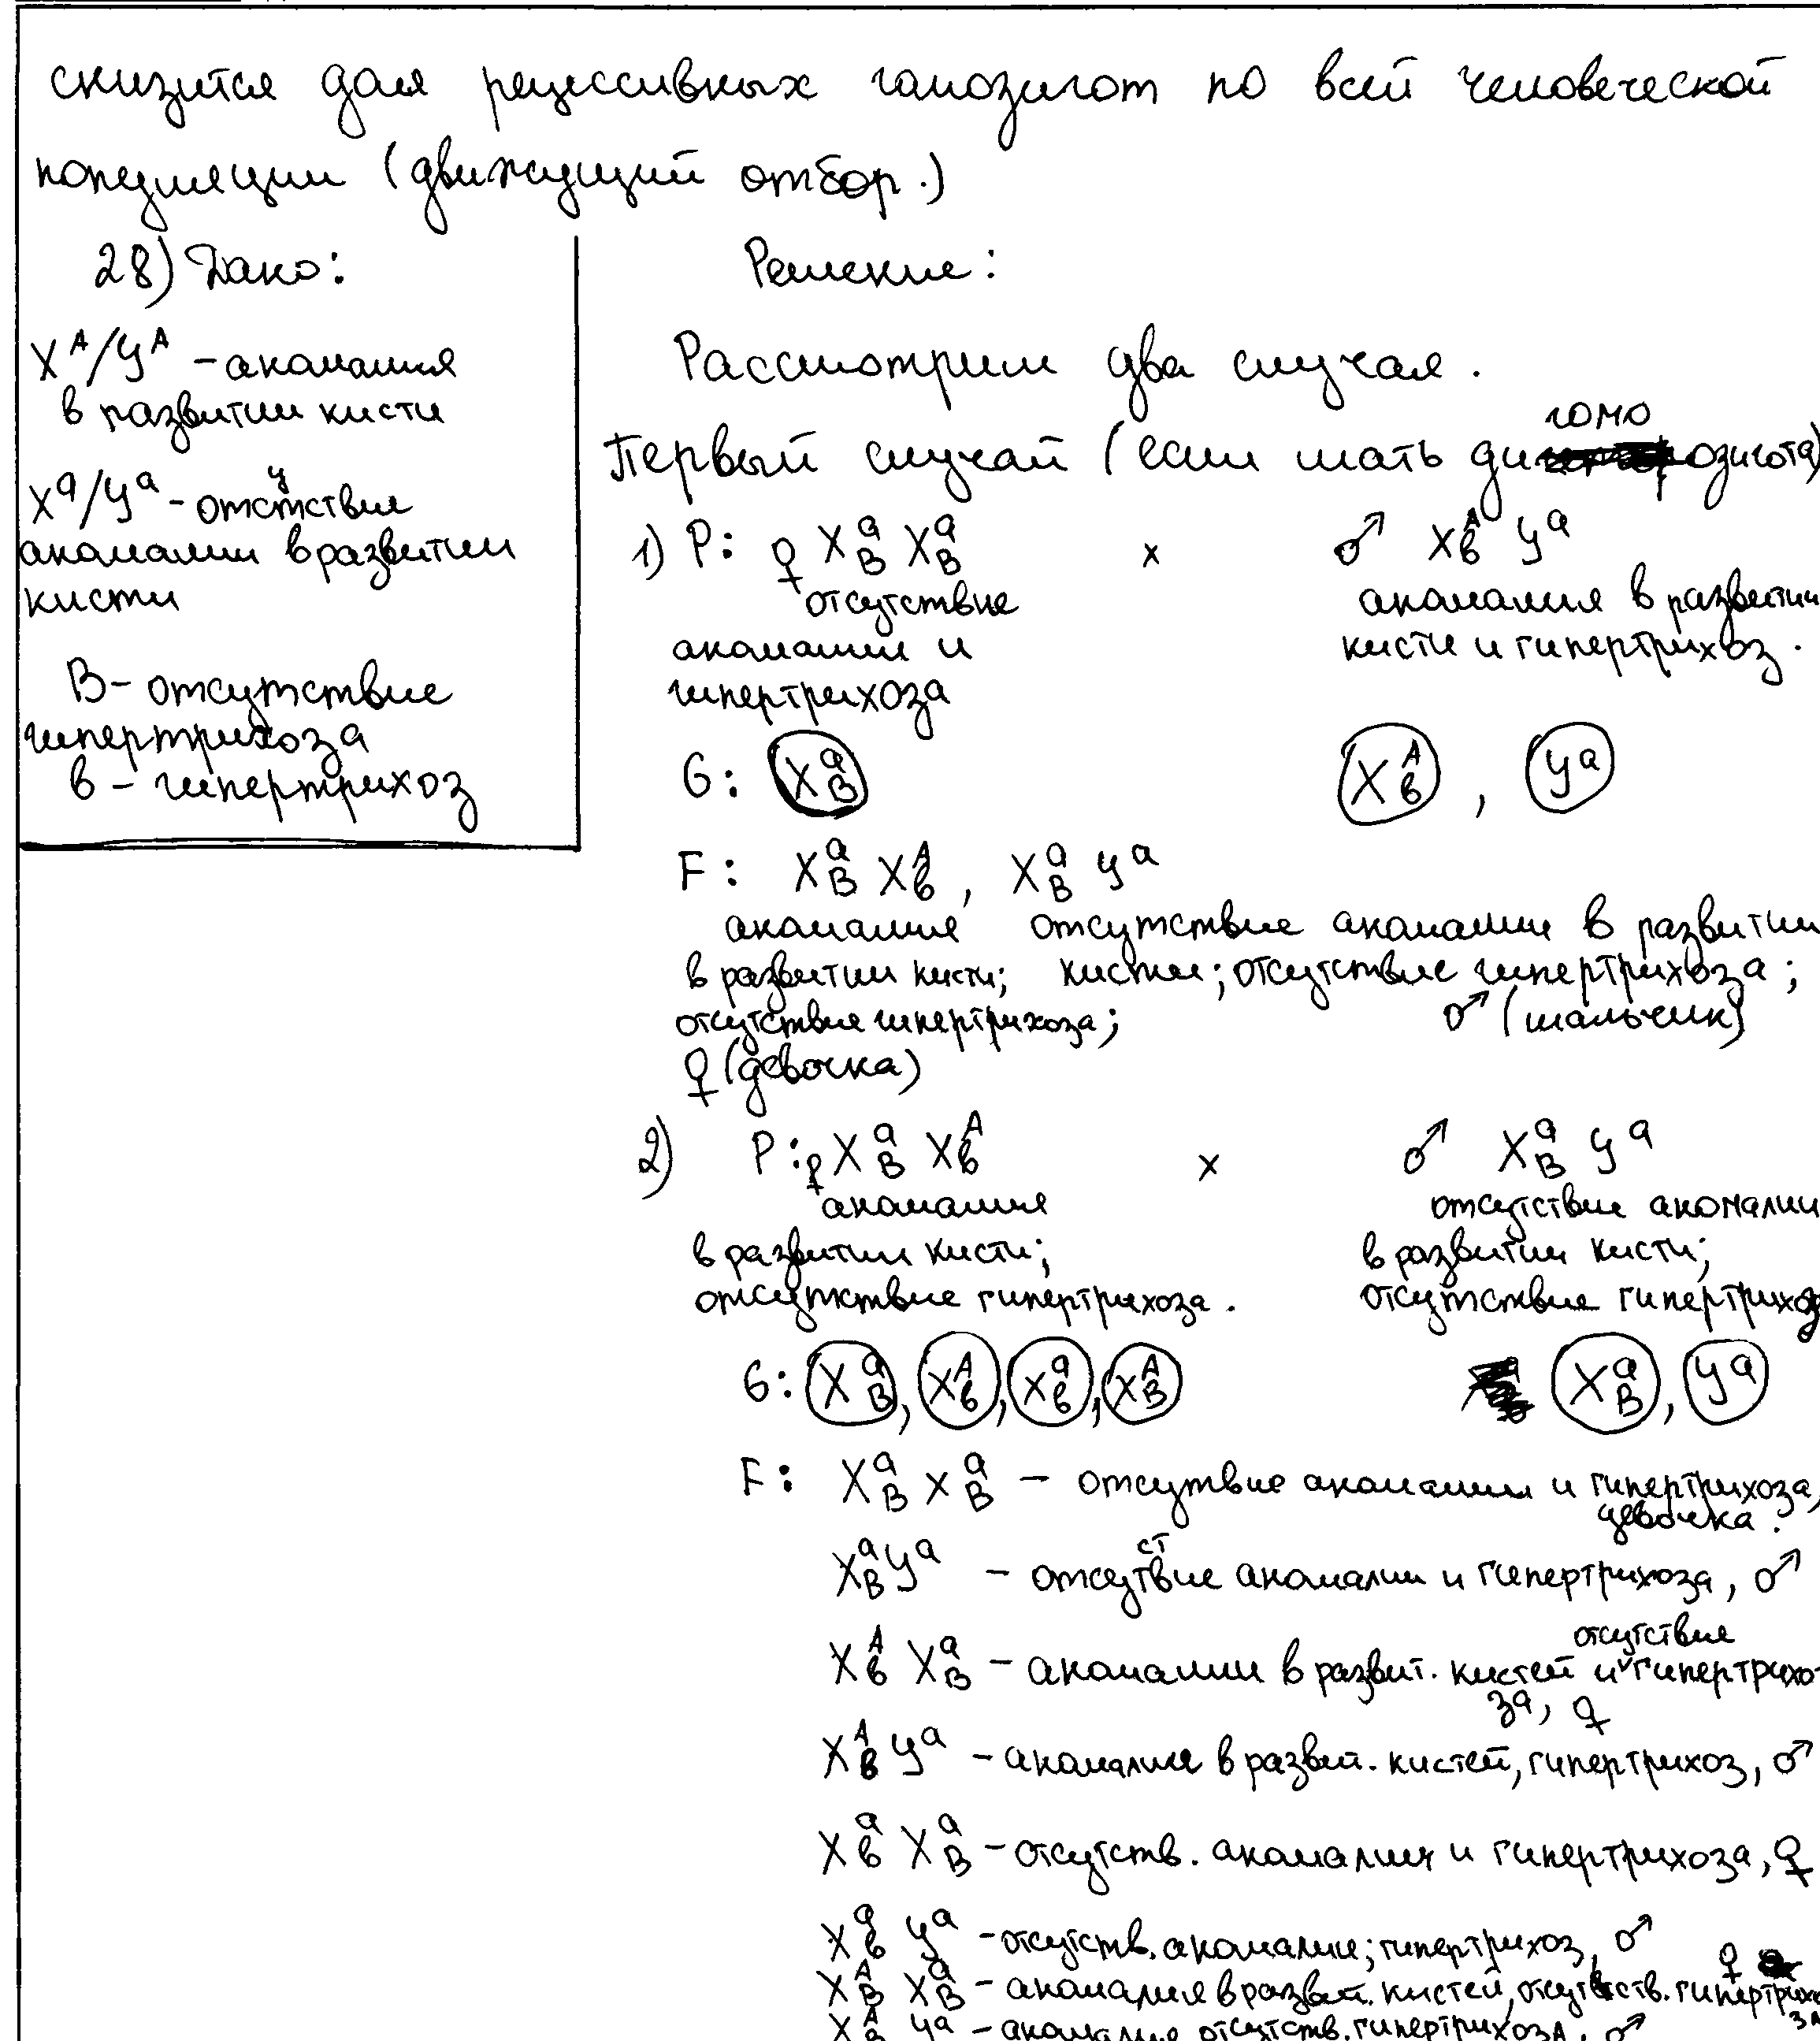 снизится доля рецессивных гомозигот по всей человеческой
популяции (движущий отбор.)
28) Дано:
X^A/Y^A - аномалия
в развитии кисти
X^a/Y^a - отсутствие
аномалии в развитии
кисти
B - отсутствие
гипертрихоза
b - гипертрихоз
Решение:
Рассмотрим два случая.
Первый случай (если мать дигомозигота)
1) P: ♀ X^a_B X^a_B × ♂ X^A_b Y^a
отсутствие аномалия в развитии
аномалии и кисти и гипертрихоз.
гипертрихоза
G: X^a_B X^A_b , Y^a
F: X^a_B X^A_b , X^a_B Y^a
аномалия отсутствие аномалии в развитии
в развитии кисти; кисти; отсутствие гипертрихоза;
отсутствие гипертрихоза; ♂ (мальчик)
♀ (девочка)
2) P: ♀ X^a_B X^A_b × ♂ X^a_B Y^a
аномалия отсутствие аномалии
в развитии кисти; в развитии кисти;
отсутствие гипертрихоза. отсутствие гипертрихоз
G: X^a_B, X^A_b, X^a_b, X^A_B X^a_B, Y^a
F: X^a_B X^a_B - отсутвие аномалии и гипертрихоза,
девочка.
X^a_B Y^a - отсутствие аномалии и гипертрихоза, ♂
X^A_b X^a_B - аномалии в развит. кистей и отсутствие гипертрихо-
за, ♀
X^A_b Y^a - аномалия в развит. кистей, гипертрихоз, ♂
X^a_b X^a_B - отсутств. аномалии и гипертрихоза, ♀
X^a_b Y^a - отсутств. аномалии; гипертрихоз, ♂
X^A_B X^a_B - аномалия в развит. кистей, отсутств. гипертрихо
за ♀
X^A_B Y^a - аномалия отсутств. гипертрихоза, ♂